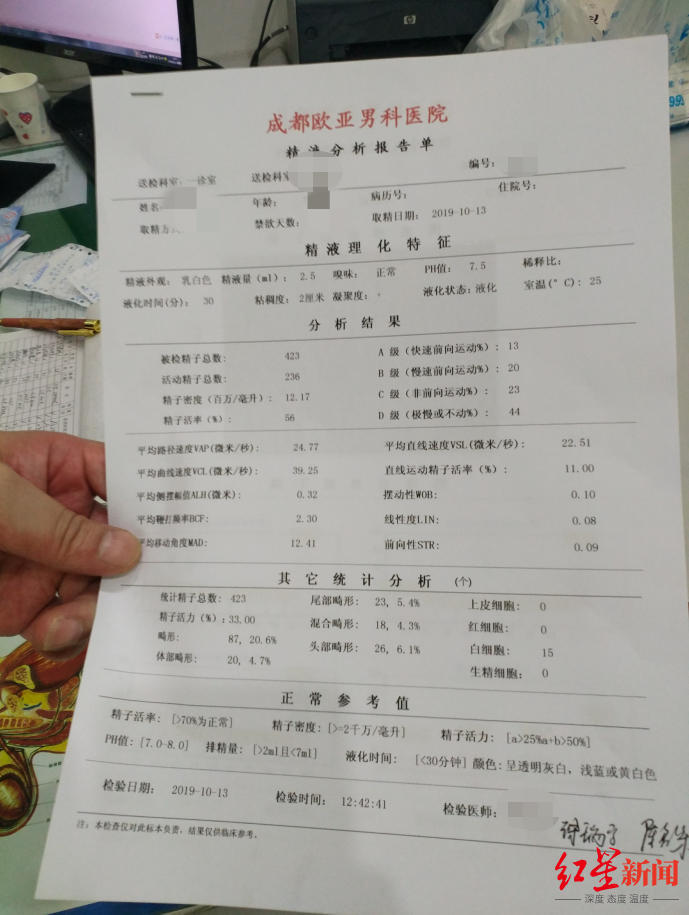 成都欧亚男科医院
精液分析报告单
送检科室：一诊室 送检科室 编号：
姓名： 年龄： 病历号： 住院号：
取精方式 禁欲天数： 取精日期：2019-10-13
精液理化特征
精液外观：乳白色 精液量(ml)：2.5 嗅味：正常 PH值：7.5 稀释比：
液化时间(分)：30 粘稠度：2厘米 凝聚度：+ 液化状态：液化 室温(°C)：25
分析结果
被检精子总数：423 A 级（快速前向运动%）：13
活动精子总数：236 B 级（慢速前向运动%）：20
精子密度（百万/毫升）：12.17 C 级（非前向运动%）：23
精子活率（%）：56 D 级（极慢或不动%）：44
平均路径速度VAP(微米/秒)：24.77 平均直线速度VSL(微米/秒)：22.51
平均曲线速度VCL(微米/秒)：39.25 直线运动精子活率（%）：11.00
平均侧摆幅值ALH(微米)：0.32 摆动性WOB：0.10
平均鞭打频率BCF：2.30 线性度LIN：0.08
平均移动角度MAD：12.41 前向性STR：0.09
其它统计分析 (个)
统计精子总数：423 尾部畸形：23, 5.4% 上皮细胞：0
精子活力（%）：33.00 混合畸形：18, 4.3% 红细胞：0
畸形：87, 20.6% 头部畸形：26, 6.1% 白细胞：15
体部畸形：20, 4.7% 生精细胞：0
正常参考值
精子活率：[>70%为正常] 精子密度：[>=2千万/毫升] 精子活力：[a>25%a+b>50%]
PH值：[7.0-8.0] 排精量：[>2ml且<7ml] 液化时间：[<30分钟] 颜色：呈透明灰白，浅蓝或黄白色
检验日期：2019-10-13 检验时间：12:42:41 检验医师：
注：本检查仅对此标本负责，结果仅供临床参考。
红星新闻
深度 态度 温度